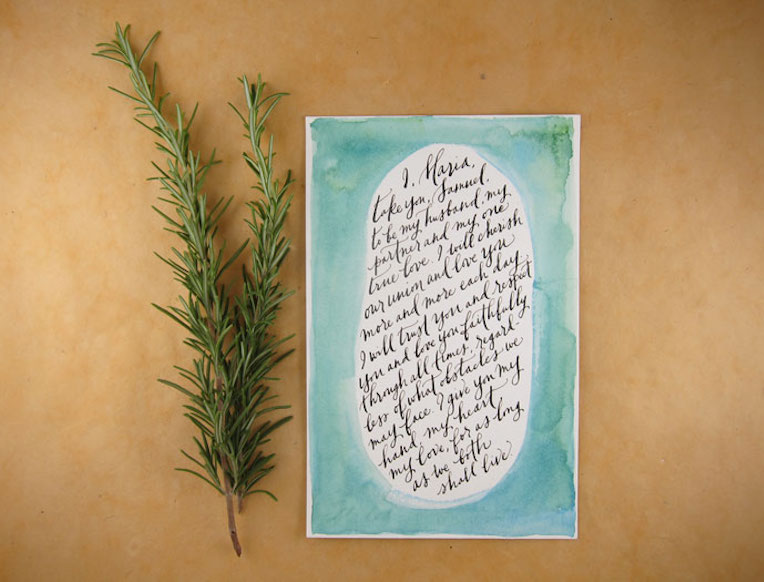 I, Maria,
take you, Samuel,
to be my husband, my
partner and my one
true love. I will cherish
our union and love you
more and more each day.
I will trust you and respect
you and love you faithfully
through all times, regard-
less of what obstacles we
may face. I give you my
hand, my heart,
my love, for as long
as we both
shall live.